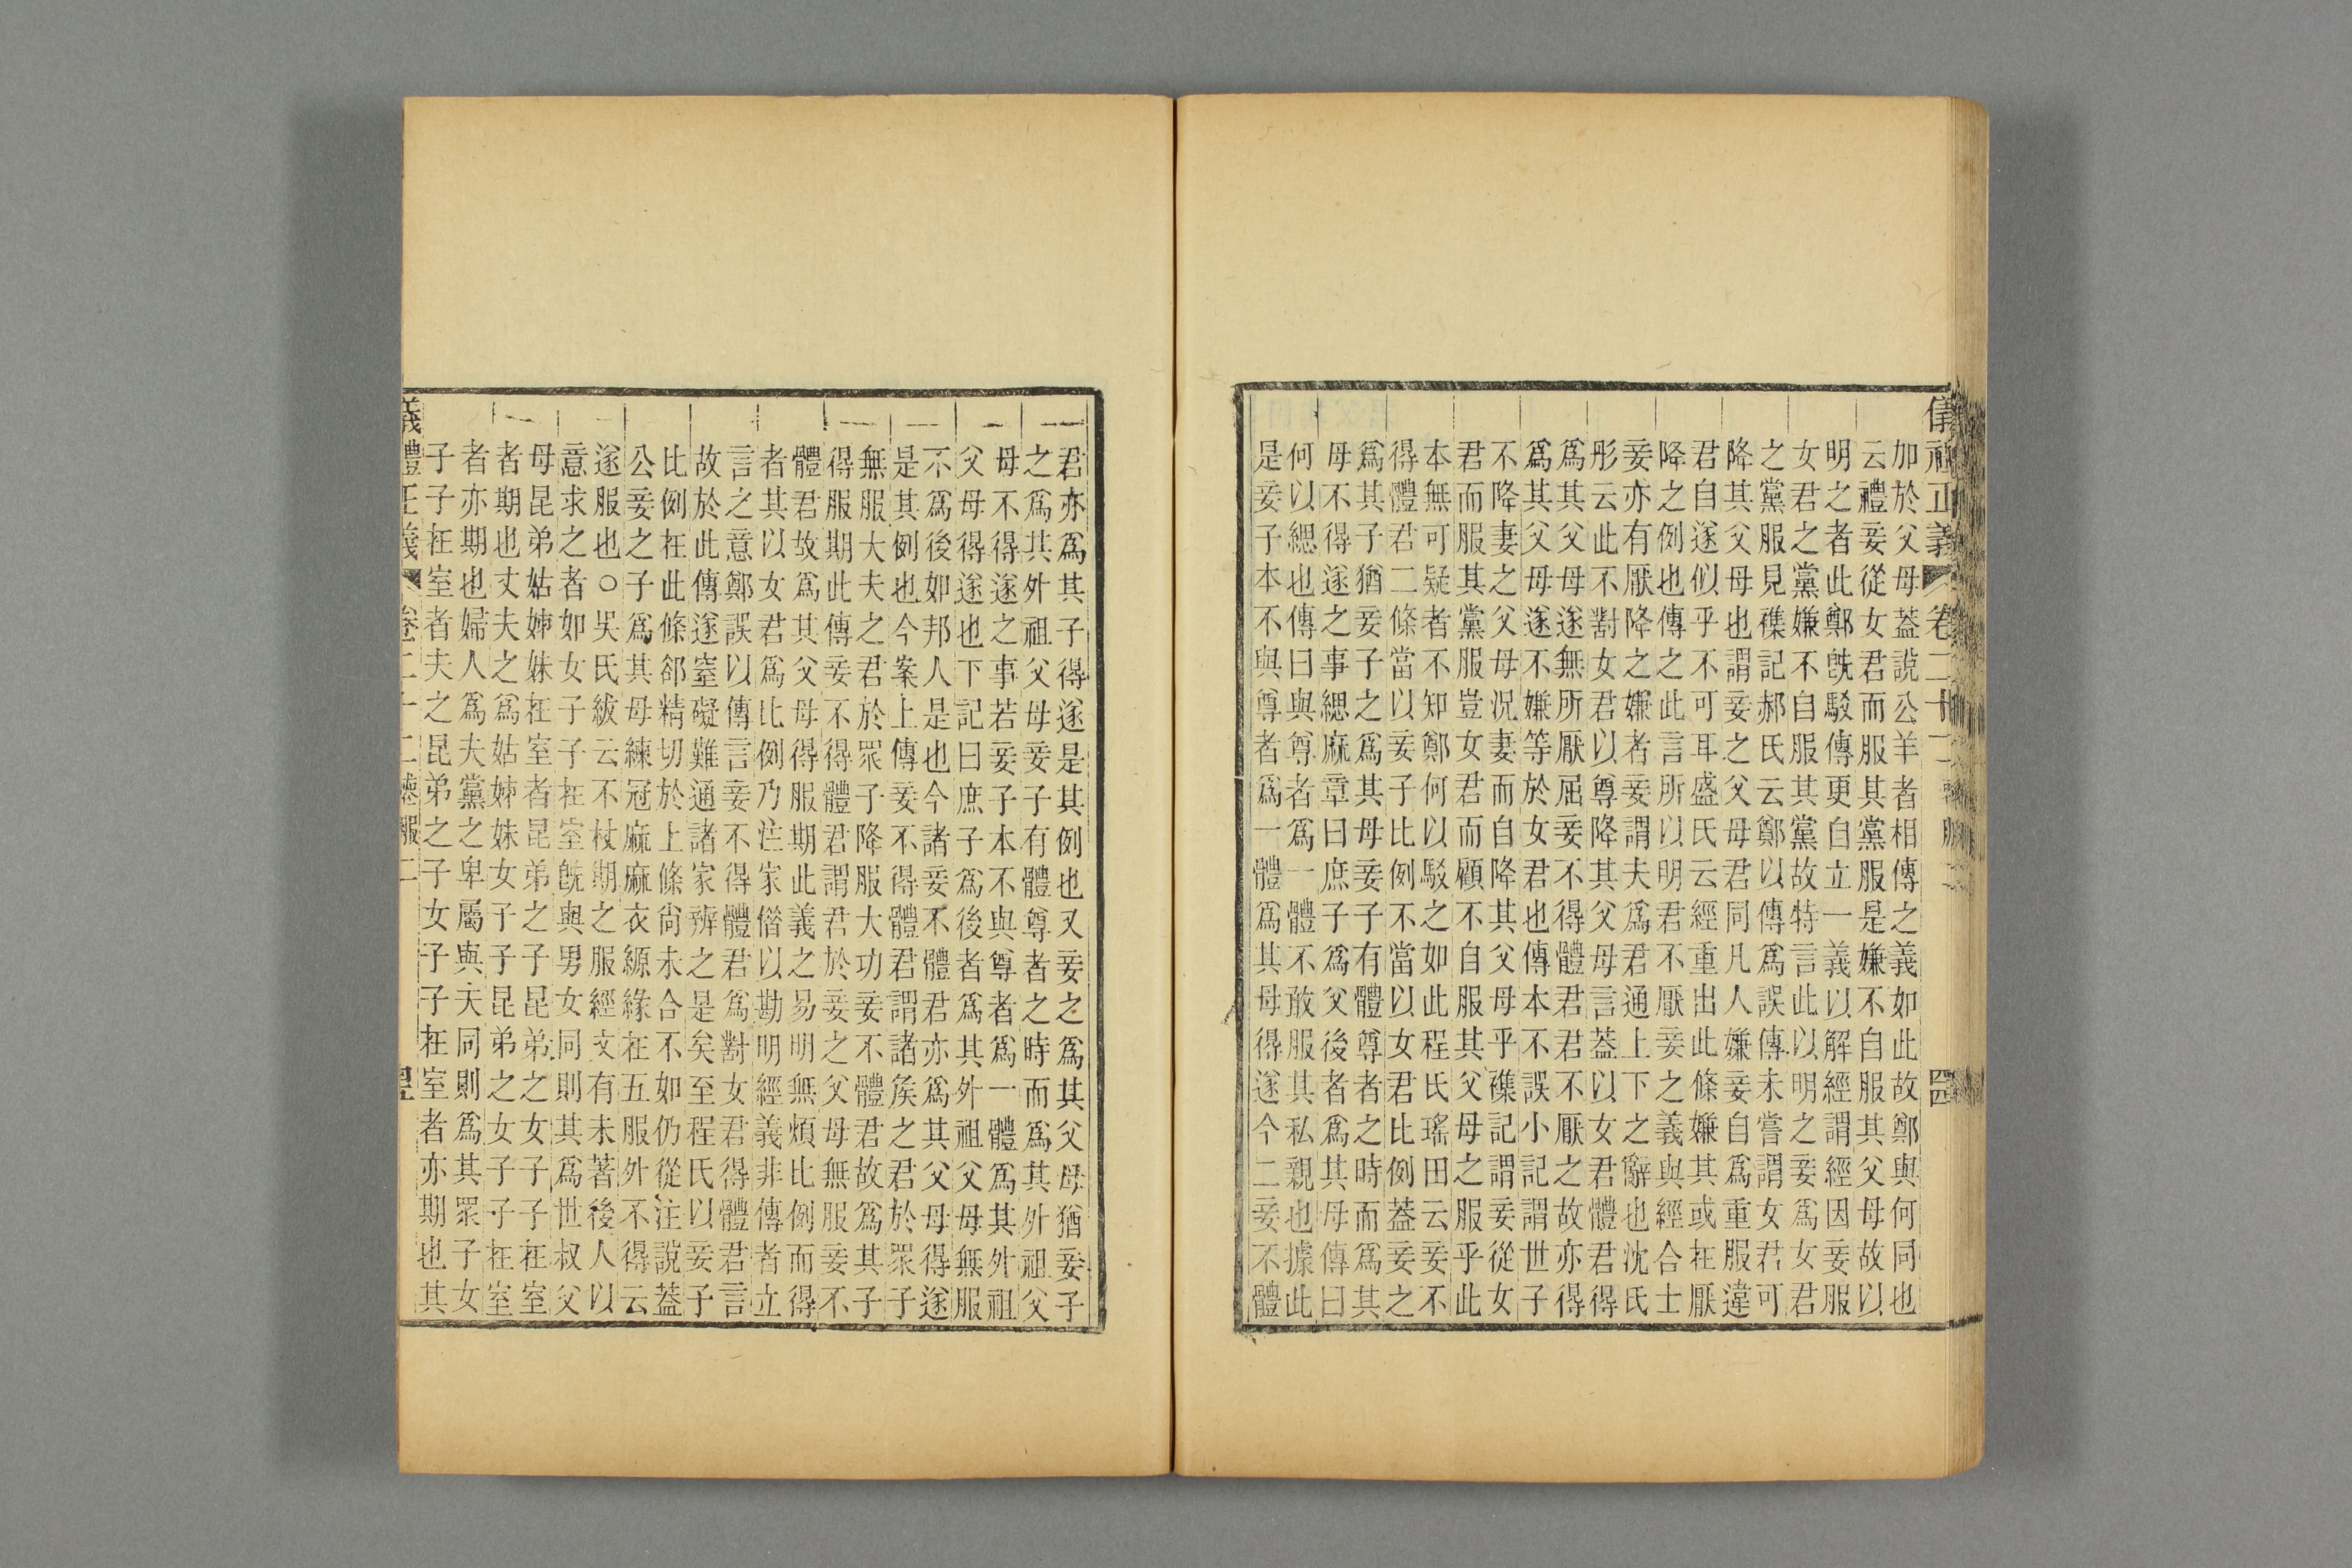 儀禮正義 卷二十二 喪服二 四十四
加於父母蓋說公羊者相傳之義如此故鄭與何同也
云禮妾從女君而服其黨服是嫌不自服其父母故以
明之者此鄭旣駁傳更自立一義以解經謂經因妾服
女君之黨嫌不自服其黨故特言此以明之妾爲女君
之黨服見襍記郝氏云鄭以傳爲誤傳未嘗謂女君可
降其父母也謂妾之父母君同凡人嫌妾自爲重服違
君自遂似乎不可耳盛氏云經重出此條嫌其或在厭
降之例也傳之此言所以明君不厭妾之義與經合士
妾亦有厭降之嫌者妾謂夫爲君通上下之辭也沈氏
彤云此不對女君以尊降其父母言蓋以女君體君得
爲其父母遂無所厭屈妾不得體君君不厭之故亦得
爲其父母遂不嫌等於女君也傳本不誤小記謂世子
不降妻之父母況妻而自降其父母乎襍記謂妾從女
君而服其黨服豈女君而顧不自服其父母之服乎此
本無可疑者不知鄭何以駁之如此程氏瑤田云妾不
得體君二條當以妾子比例不當以女君比例蓋妾之
爲其子猶妾子之爲其母妾子有體尊者之時而爲其
母不得遂之事緦麻章曰庶子爲父後者爲其母傳曰
何以緦也傳曰與尊者爲一體不敢服其私親也據此
是妾子本不與尊者爲一體爲其母得遂今二妾不體
君亦爲其子得遂是其例也又妾之爲其父母猶妾子
之爲其外祖父母妾子有體尊者之時而爲其外祖父
母不得遂之事若妾子本不與尊者爲一體爲其外祖
父母得遂也下記曰庶子爲後者爲其外祖父母無服
不爲後如邦人是也今諸妾不體君亦爲其父母得遂
是其例也今案上傳妾不得體君謂諸矦之君於眾子
無服大夫之君於眾子降服大功妾不體君故爲其子
得服期此傳妾不得體君謂君於妾之父母無服妾不
體君故爲其父母得服期此義之易明無煩比例而得
者其以女君爲比例乃注家偺以勘明經義非傳者立
言之意鄭誤以傳言妾不得體君爲對女君得體君言
故於此傳遂窒礙難通諸家辨之是矣至程氏以妾子
比例在此條郤精切於上條尙未合不如仍從注說蓋
公妾之子爲其母練冠麻麻衣縓緣在五服外不得云
遂服也○吳氏紱云不杖期之服經文有未著後人以
意求之者如女子子在室旣與男女同則其爲世叔父
母昆弟姑姊妹在室者昆弟之子昆弟之女子子在室
者期也丈夫之爲姑姊妹女子子昆弟之女子子在室
者亦期也婦人爲夫黨之卑屬與夫同則爲其眾子女
子子在室者夫之昆弟之子女子子在室者亦期也其
儀禮正義 卷二十二 喪服二